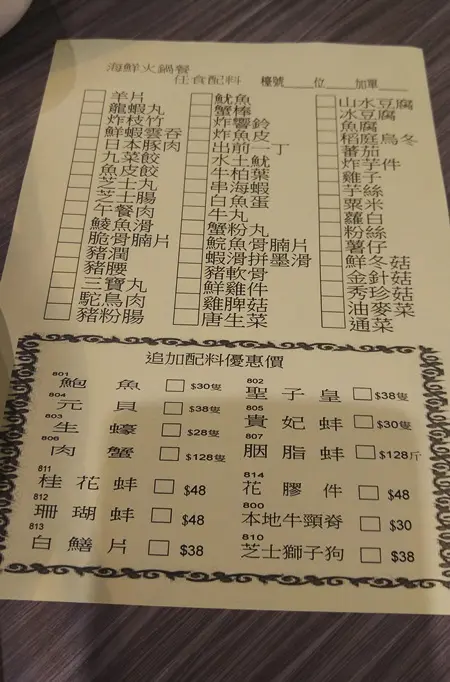 海鮮火鍋餐
任食配料 檯號____位____加單____
羊片
龍蝦丸
炸枝竹
鮮蝦雲吞
日本豚肉
九菜餃
魚皮餃
芝士丸
芝士腸
午餐肉
鯪魚滑
脆骨腩片
豬潤
豬腰
三寶丸
鴕鳥肉
豬粉腸
魷魚
蟹棒
炸響鈴
炸魚皮
出前一丁
水土魷
牛柏葉
串海蝦
白魚蛋
牛丸
蟹粉丸
鯇魚骨腩片
蝦滑拼墨滑
豬軟骨
鮮雞件
雞脾菇
唐生菜
山水豆腐
冰豆腐
魚腐
稻庭烏冬
蕃茄
炸芋件
雞子
芋絲
粟米
蘿白
粉絲
薯仔
鮮冬菇
金針菇
秀珍菇
油麥菜
通菜
追加配料優惠價
801 鮑魚 $30隻 802 聖子皇 $38隻
804 元貝 $38隻 805 貴妃蚌 $30隻
803 生蠔 $28隻 807 胭脂蚌 $128斤
806 肉蟹 $128隻
811 桂花蚌 $48 814 花膠件 $48
812 珊瑚蚌 $48 800 本地牛頸脊 $30
813 白鱔片 $38 810 芝士獅子狗 $38